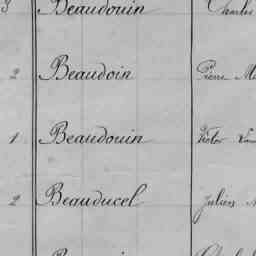 8 Beaudouin Charles
2 Beaudoin Pierre
1 Beaudouin Victor
2 Beauducel Julien